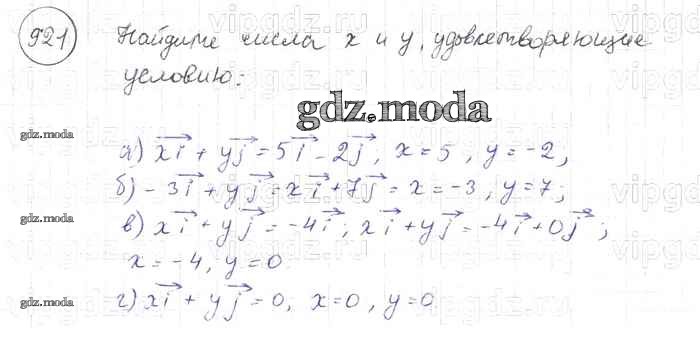 921 Найдите числа x и y, удовлетворяющие
условию:
gdz.moda
gdz.moda
а) xi⃗ + yj⃗ = 5i⃗ - 2j⃗, x = 5, y = -2;
б) -3i⃗ + yj⃗ = xi⃗ + 7j⃗ = x = -3, y = 7;
gdz.moda
в) xi⃗ + yj⃗ = -4i⃗; xi⃗ + yj⃗ = -4i⃗ + 0j⃗;
x = -4, y = 0
gdz.moda
г) xi⃗ + yj⃗ = 0; x = 0, y = 0